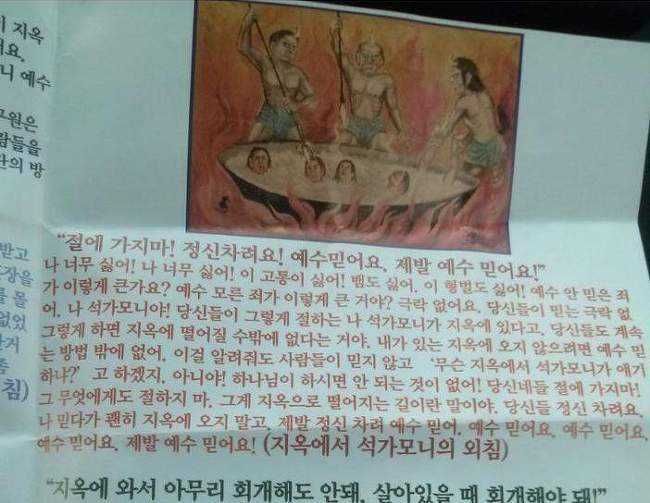 지옥
예수
구원은
람들을
의 방
"절에 가지마! 정신차려요! 예수믿어요, 제발 예수 믿어요!"
나 너무 싫어! 나 너무 싫어! 이 고통이 싫어! 뱀도 싫어, 이 형벌도 싫어! 예수 안 믿은 죄
가 이렇게 큰가요? 예수 모른 죄가 이렇게 큰 거야? 극락 없어요, 당신들이 믿는 극락 없
어, 나 석가모니야! 당신들이 그렇게 절하는 나 석가모니가 지옥에 있다고, 당신들도 계속
그렇게 하면 지옥에 떨어질 수밖에 없다는 거야. 내가 있는 지옥에 오지 않으려면 예수 믿
는 방법 밖에 없어, 이걸 알려줘도 사람들이 믿지 않고 '무슨 지옥에서 석가모니가 얘기
하냐?' 고 하겠지. 아니야! 하나님이 하시면 안 되는 것이 없어! 당신네들 절에 가지마!
그 무엇에게도 절하지 마. 그게 지옥으로 떨어지는 길이란 말이야. 당신들 정신 차려요.
나 믿다가 괜히 지옥에 오지 말고, 제발 정신 차려 예수 믿어, 예수 믿어요, 예수 믿어요,
예수 믿어요, 제발 예수 믿어요! (지옥에서 석가모니의 외침)
받고
장을
를 몰
없었
거
침)
"지옥에 와서 아무리 회개해도 안돼, 살아있을 때 회개해야 돼!"